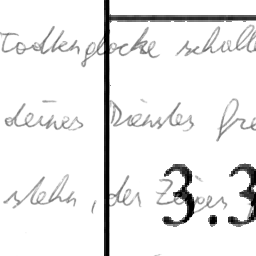 Todtenglocke schalle
deines Dienstes fre
stehn, der Zeiger
3.3